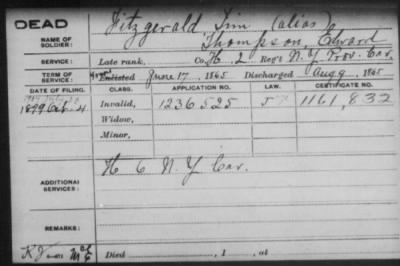 DEAD
NAME OF SOLDIER: Fitzgerald Tim (alias)
Thompson, Edward
SERVICE: Late rank, Co. H, 2 Reg't N.Y. Prov. Cav.
TERM OF SERVICE: Enlisted June 17, 1865 Discharged Aug 9, 1865
DATE OF FILING. CLASS. APPLICATION NO. LAW. CERTIFICATE NO.
1899 Oct. 4 Invalid, 1236525 1161,832
Widow,
Minor,
ADDITIONAL SERVICES: H 6 N.Y. Cav.
REMARKS:
Died , 1 , at